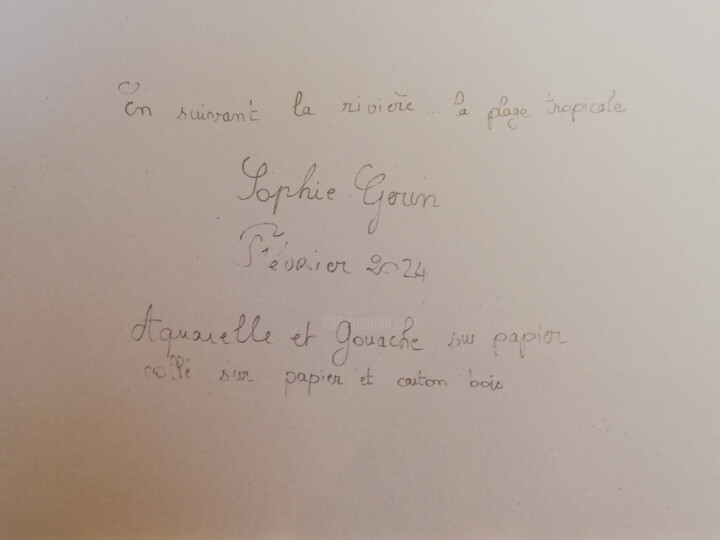 En suivant la rivière... la plage tropicale
Sophie Gorin
Février 2024
Aquarelle et Gouache sur papier
collé sur papier et carton bois